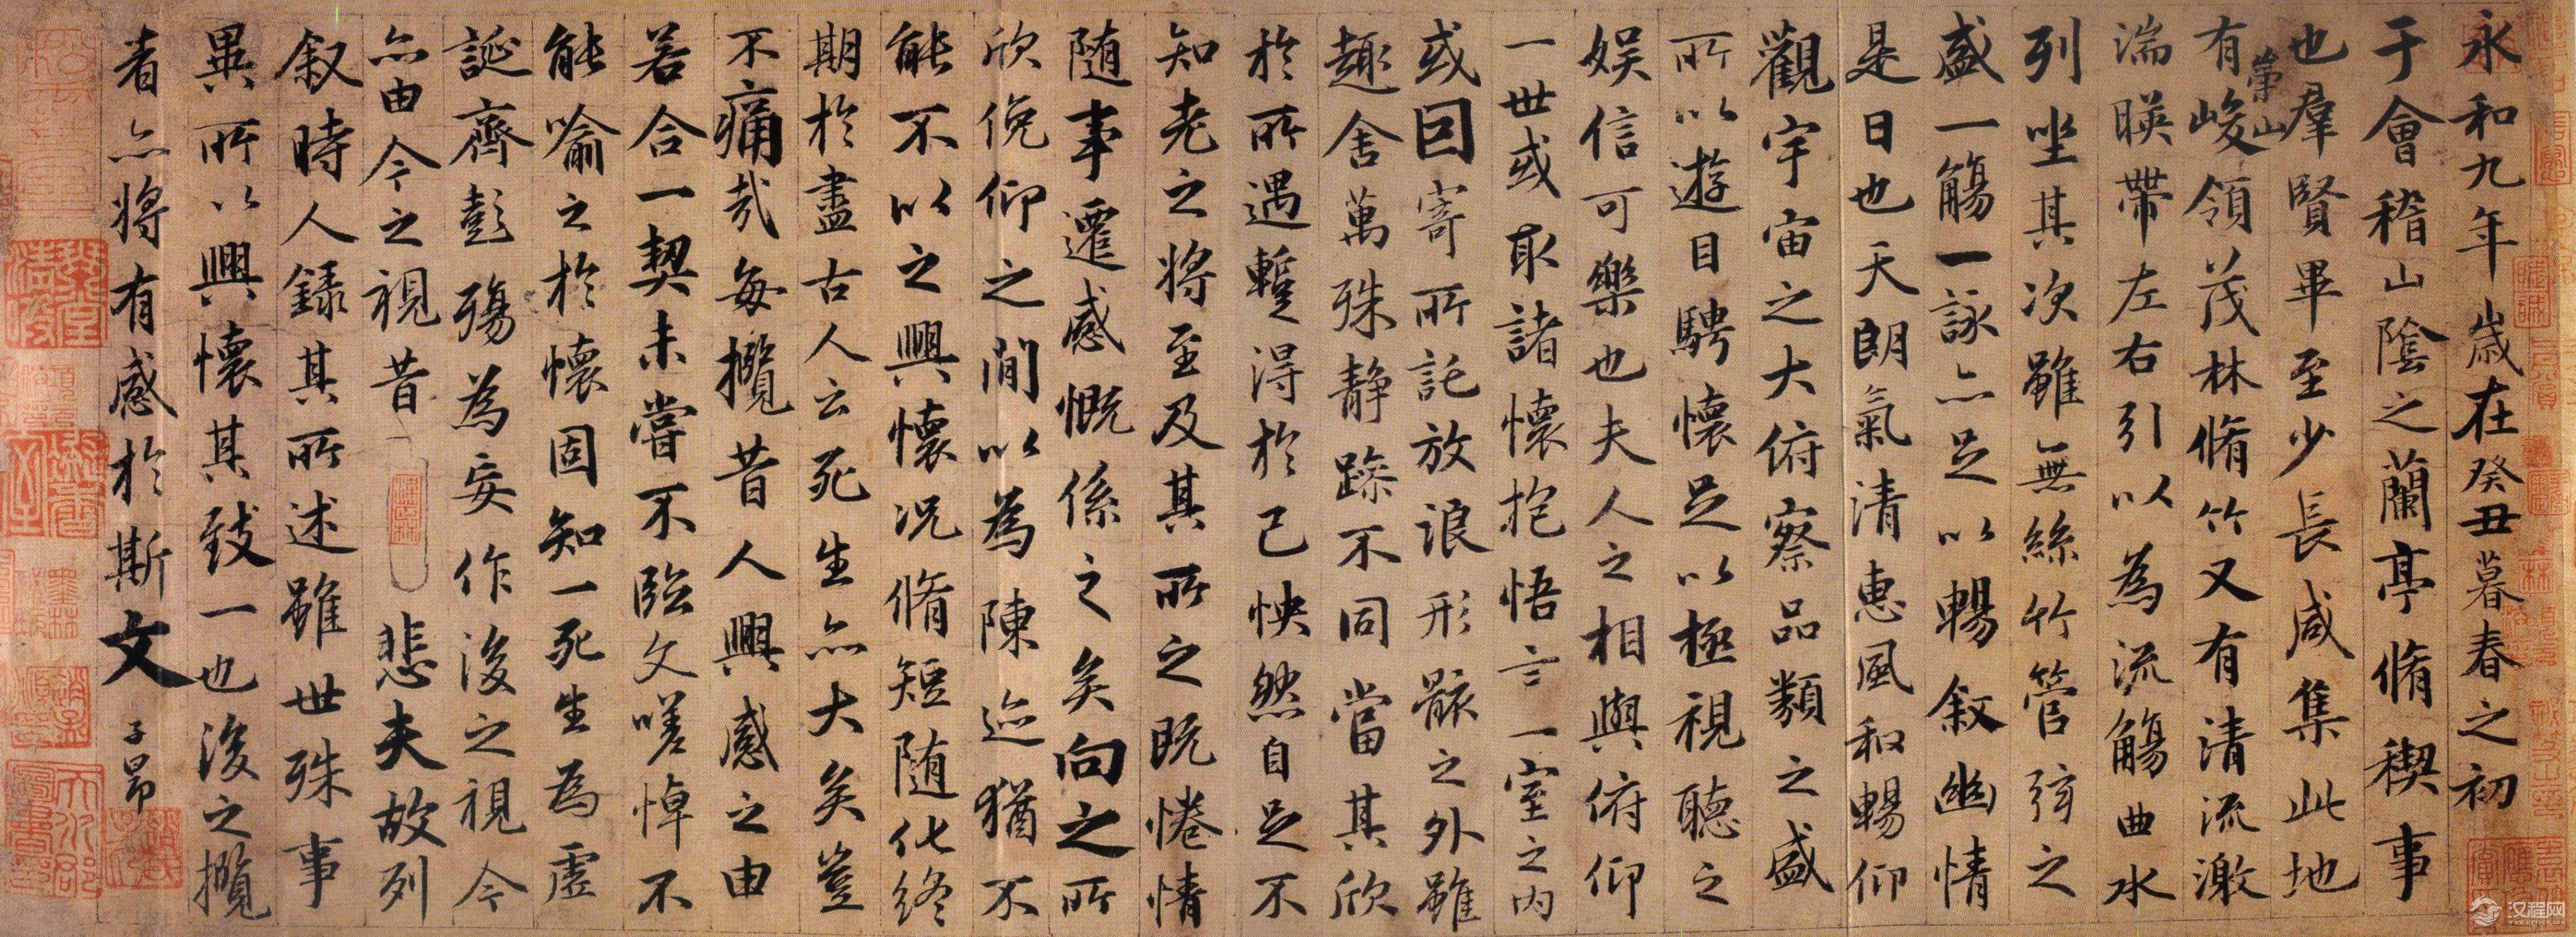 永和九年歲在癸丑暮春之初
于會稽山陰之蘭亭脩稧事
也羣賢畢至少長咸集此地
有崇山峻領茂林脩竹又有清流激
湍暎帶左右引以為流觴曲水
列坐其次雖無絲竹管弦之
盛一觴一詠亦足以暢叙幽情
是日也天朗氣清惠風和暢仰
觀宇宙之大俯察品類之盛
所以遊目騁懷足以極視聽之
娛信可樂也夫人之相與俯仰
一世或取諸懷抱悟言一室之內
或因寄所託放浪形骸之外雖
趣舍萬殊静躁不同當其欣
於所遇蹔得於己怏然自足不
知老之將至及其所之既惓情
随事遷感慨係之矣向之所
欣俛仰之閒以為陳迹猶不
能不以之興懷況脩短随化終
期於盡古人云死生亦大矣豈
不痛哉每攬昔人興感之由
若合一契未嘗不臨文嗟悼不
能喻之於懷固知一死生為虛
誕齊彭殤為妄作後之視今
亦由今之視昔 悲夫故列
叙時人錄其所述雖世殊事
異所以興懷其致一也後之攬
者亦將有感於斯文 子昂
汉程网